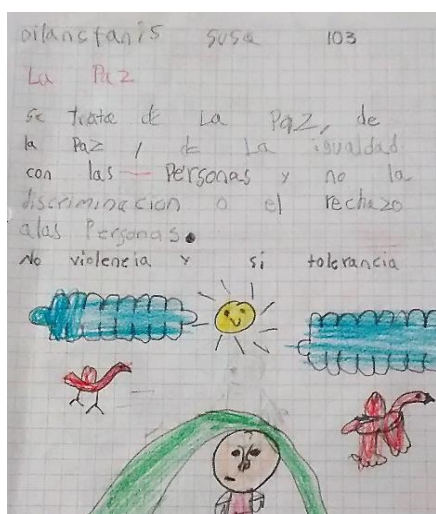 Dilanstanis susa 103
La Paz
se trata de La Paz, de
la Paz, de La igualdad
con las Personas y no la
discriminacion o el rechazo
alas Personas.
No violencia y si tolerancia